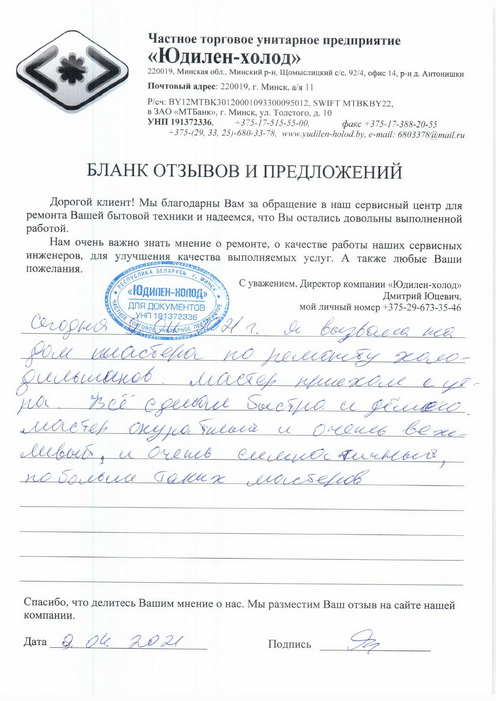 Частное торговое унитарное предприятие
«Юдилен-холод»
220019, Минская обл., Минский р-н, Щомыслицкий с/с, 92/4, офис 14, р-н д. Антонишки
Почтовый адрес: 220019, г. Минск, а/я 11
Р/сч: BY12MTBK30120001093300095012, SWIFT MTBKBY22,
в ЗАО «МТБанк», г. Минск, ул. Толстого, д. 10
УНП 191372336, +375-17-515-55-00, факс +375-17-388-20-55
+375-(29, 33, 25)-680-33-78, www.yudilen-holod.by, e-mail: 6803378@mail.ru
БЛАНК ОТЗЫВОВ И ПРЕДЛОЖЕНИЙ
Дорогой клиент! Мы благодарны Вам за обращение в наш сервисный центр для
ремонта Вашей бытовой техники и надеемся, что Вы остались довольны выполненной
работой.
Нам очень важно знать мнение о ремонте, о качестве работы наших сервисных
инженеров, для улучшения качества выполняемых услуг. А также любые Ваши
пожелания.
С уважением, Директор компании «Юдилен-холод»
Дмитрий Юцевич,
мой личный номер +375-29-673-35-46
РЕСПУБЛИКА БЕЛАРУСЬ, Г. МИНСК
«ЮДИЛЕН-ХОЛОД»
ДЛЯ ДОКУМЕНТОВ
УНП 191372336
ЧАСТНОЕ ТОРГОВОЕ УНИТАРНОЕ ПРЕДПРИЯТИЕ
Сегодня 21 г. я вызвала на
дом мастера по ремонту холо-
дильников. мастер приехал с ут-
ра. Всё сделал быстро и
мастер акуратный и очень веж-
ливый, и очень симпатичный,
побольше таких мастеров
Спасибо, что делитесь Вашим мнение о нас. Мы разместим Ваш отзыв на сайте нашей
компании.
Дата 9.04 2021 Подпись